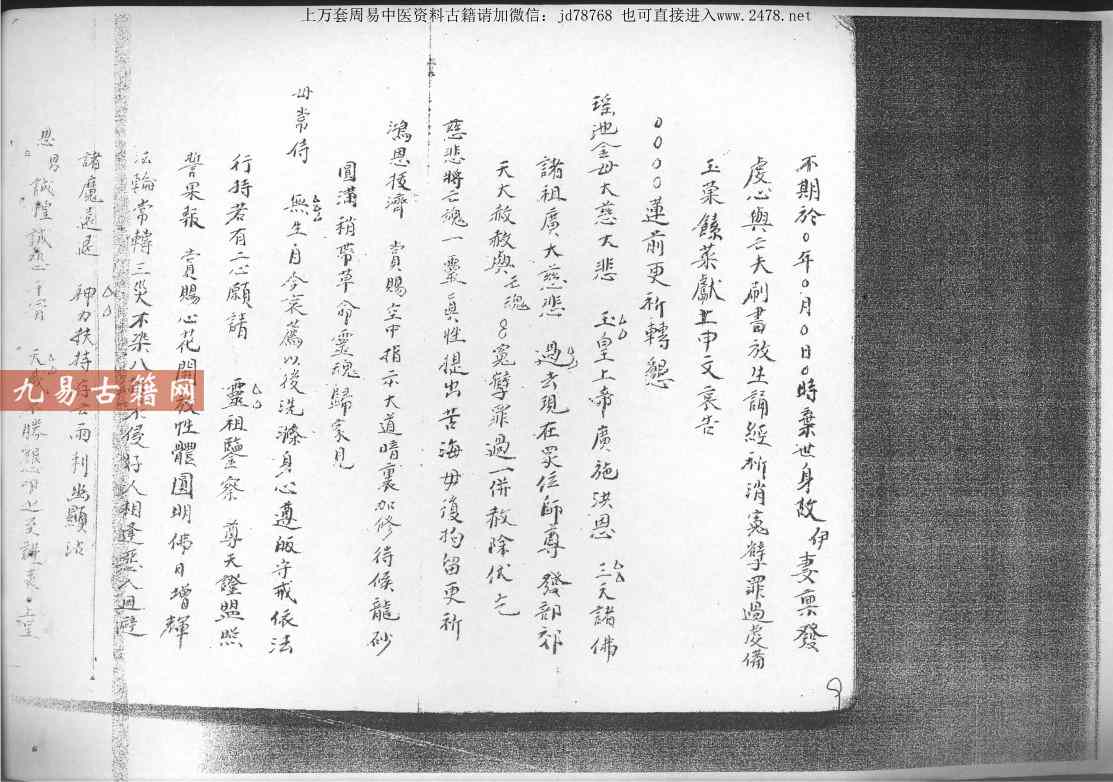 上万套周易中医资料古籍请加微信：jd78768 也可直接进入www.2478.net
不期於0年0月0日0時棄世身故 伊妻禀發
虔心與亡夫刷書放生誦經祈消寃孽罪過虔備
玉菓馐菜獻上申文哀告
0000蓮前更祈轉懇
瑶池金母大慈大悲 玉皇上帝廣施洪恩 三天諸佛
諸祖廣大慈悲 過去現在眾位師尊 發部
天大赦赦與亡魂 寃孽罪過一併赦除伏乞
慈悲將亡魂一靈眞性提出苦海毋復拘留更祈
鴻恩援濟 賞賜空中指示大道暗裏加修待候龍砂
圓滿稍帶草命靈魂歸家見
母常侍 無生自今哀薦以後洗滌身心遵皈守戒依法
行持若有二心願請 靈祖鑒察 尊天證盟照
誓果報 賞賜心花開放性體圓明佛日增輝
法輪常轉三災不染八不侵好人相逢惡人迴避
諸魔遠退 神力扶持存亡兩利幽顯沾
恩 誠惶誠恐 天 勝懇
九易古籍网